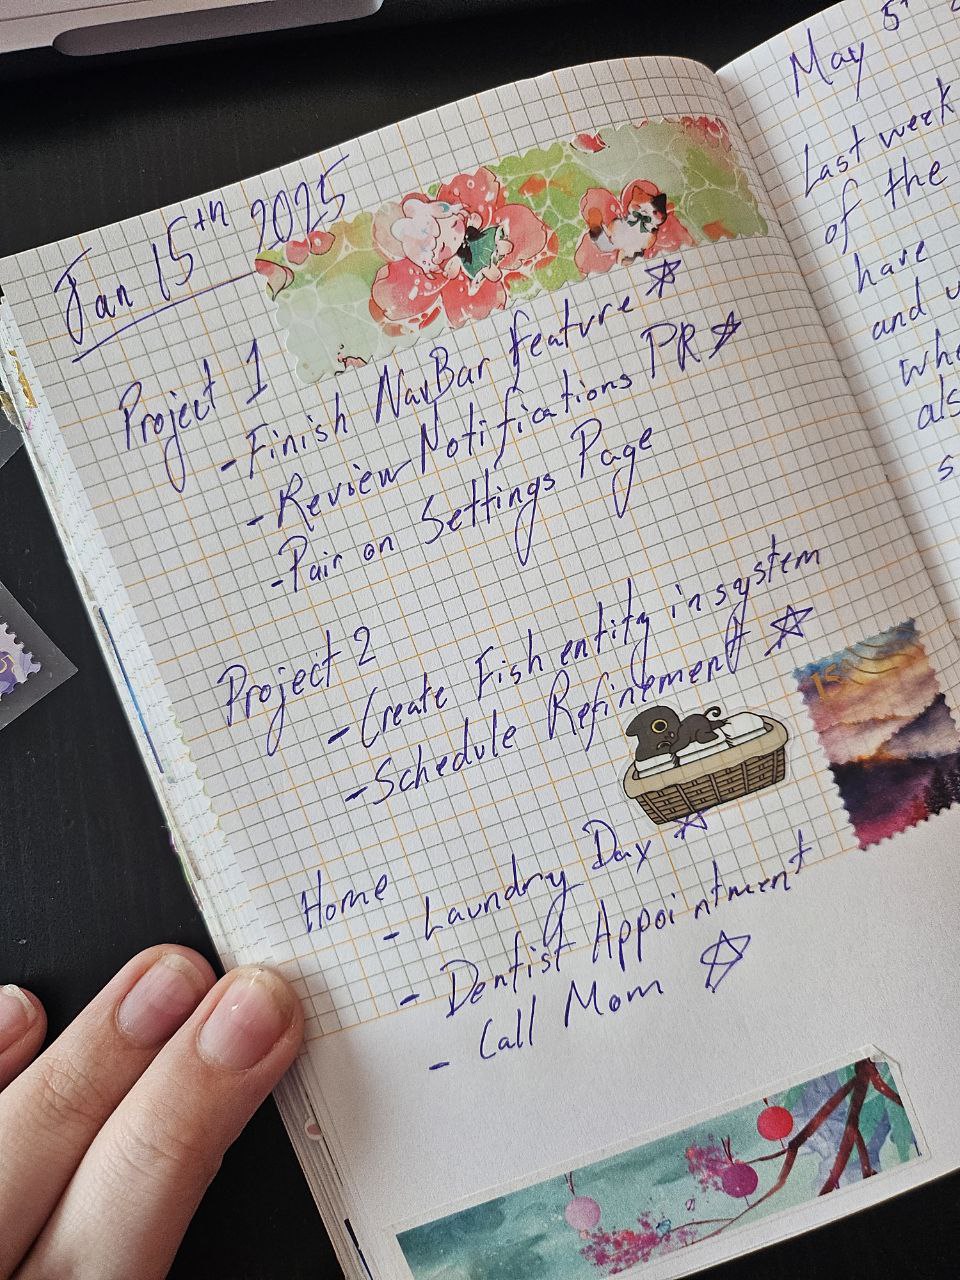 Jan 15th 2025
Project 1
- Finish NavBar feature ☆
- Review Notifications PR ☆
- Pair on Settings Page
Project 2
- Create Fish entity in system
- Schedule Refinement ☆
Home
- Laundry Day ☆
- Dentist Appointment
- Call Mom ☆
May 5
Last week
of the
have
and